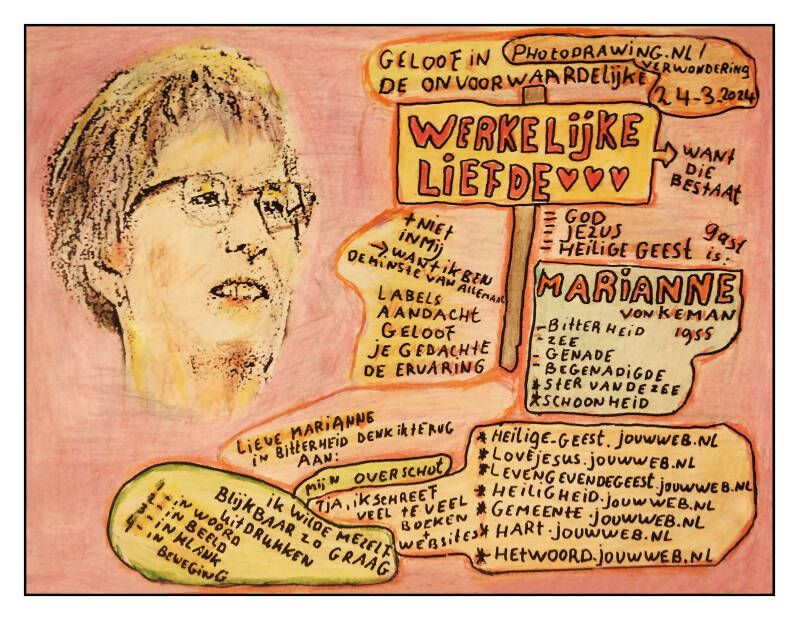 GELOOF IN
DE ONVOORWAARDELIJKE
PHOTODRAWING.NL/
VERWONDERING
24-3.2024
WERKELIJKE
LIEFDE♥♥♥
→ WANT
DIE
BESTAAT
= GOD
= JEZUS
= HEILIGE GEEST
gast
is:
+ NIET
IN MIJ
→ WANT IK BEN
DE MINSTE VAN ALLEMAAL
LABELS
AANDACHT
GELOOF
JE GEDACHTE
DE ERVARING
MARIANNE
VON KEMAN
1955
- BITTERHEID
- ZEE
- GENADE
- BEGENADIGDE
* STER VAN DE ZEE
* SCHOONHEID
LIEVE MARIANNE
IN BITTERHEID DENK IK TERUG
AAN:
MIJN OVERSCHOT
TJA, IK SCHREEF
VEEL TE VEEL
BOEKEN
+
WEBSITES
* HEILIGE-GEEST.JOUWWEB.NL
* LOVEJESUS.JOUWWEB.NL
* LEVENGEVENDEGEEST.JOUWWEB.NL
* HEILIGHEID.JOUWWEB.NL
* GEMEENTE.JOUWWEB.NL
* HART.JOUWWEB.NL
* HETWOORD.JOUWWEB.NL
IK WILDE MEZELF
BLIJKBAAR ZO GRAAG
UITDRUKKEN
- IN WOORD
- IN BEELD
- IN KLANK
- IN
BEWEGING